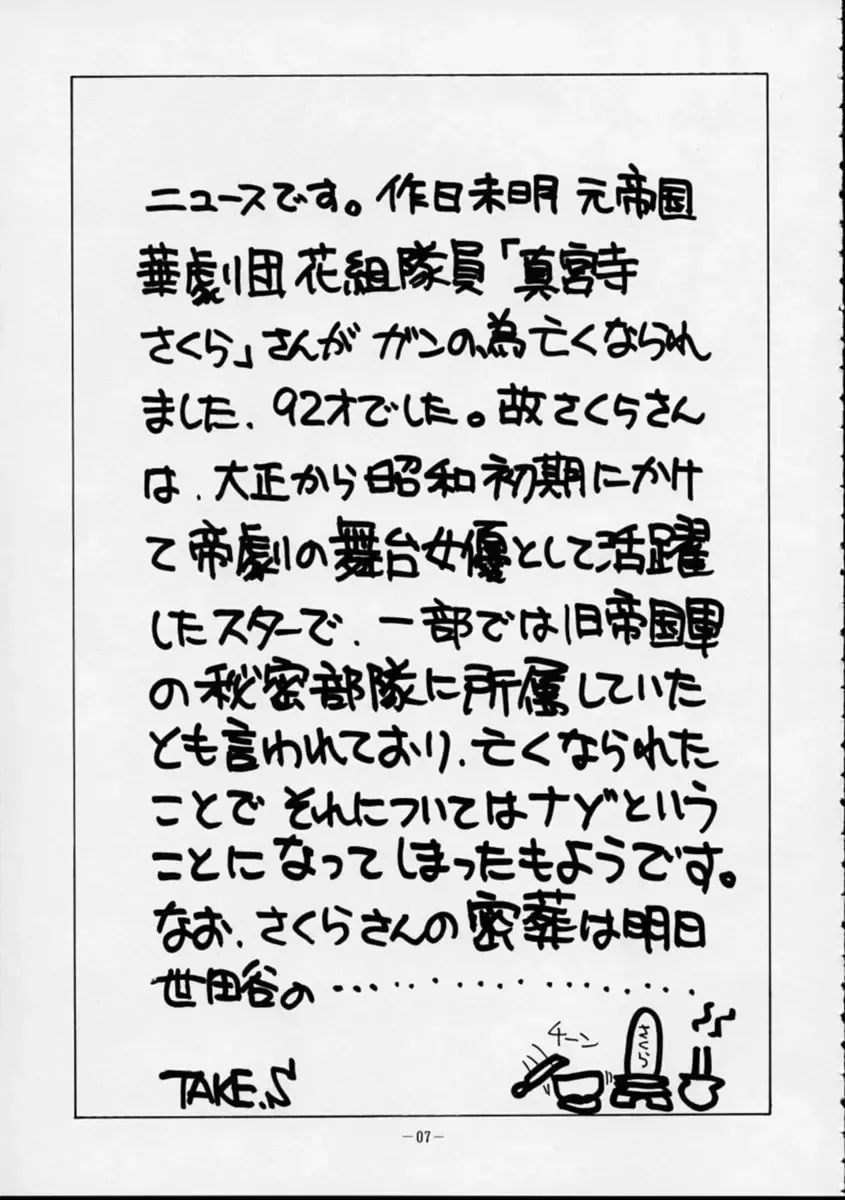 ニュースです。作日未明 元帝国
華劇団 花組隊員「真宮寺
さくら」さんが ガンの為亡くなられ
ました、92才でした。故さくらさん
は、大正から昭和初期にかけ
て帝劇の舞台女優として活躍
したスターで、一部では旧帝国軍
の秘密部隊に所属していた
とも言われており、亡くなられた
ことで それについてはナゾという
ことになってしまったもようです。
なお、さくらさんの密葬は明日
世田谷の‥‥‥‥‥‥‥‥
チーン
さくら
TAKE.S
－07－